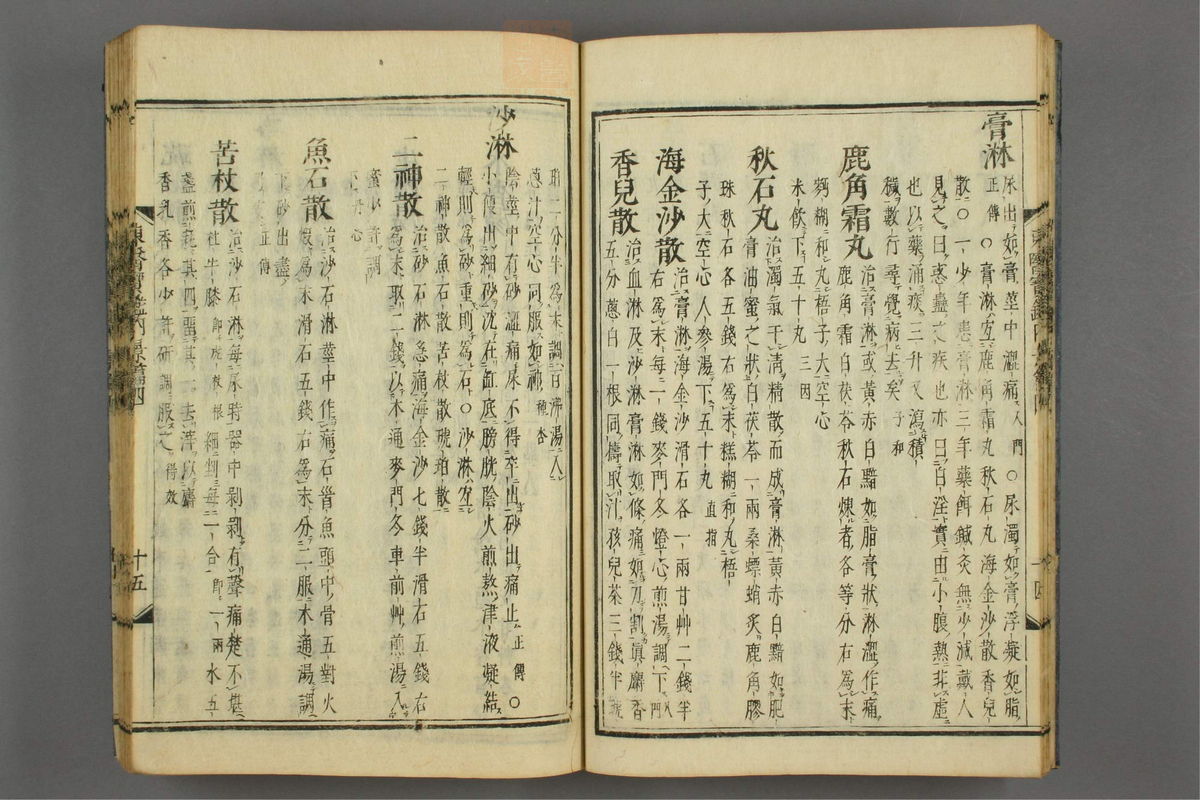 膏淋
尿出如膏莖中澁痛入門○尿濁如膏浮凝如脂
正傳○膏淋宜鹿角霜丸秋石丸海金沙散香兒
散○一少年患膏淋三年藥餌鍼灸無少減戴人
見之曰惑蠱之疾也亦曰白淫實由小腹熱非虛
也以藥涌痰三升又瀉積
穢數行尋覺病去矣子和
鹿角霜丸
治膏淋或黃赤白黯如脂膏狀淋澁作痛
鹿角霜白茯苓秋石煉者各等分右爲末
麪糊和丸梧子大空心
米飮下五十丸三因
秋石丸
治濁氣干淸精散而成膏淋黃赤白黯如肥
膏油蜜之狀白茯苓一兩桑螵蛸炙鹿角膠
珠秋石各五錢右爲末糕糊和丸梧
子大空心人參湯下五十丸直指
海金沙散
治膏淋海金沙滑石各一兩甘艸二錢半
右爲末每一錢麥門冬燈心煎湯調下入門
香兒散
治血淋及沙淋膏淋如條痛如刀割眞麝香
五分蔥白一根同擣取汁孩兒茶三錢半琥
珀二分半爲末調百沸湯入
蔥汁空心同服如神種杏
沙淋
陰莖中有砂澁痛尿不得卒出砂出痛止正傳○
小便出細砂沈在缸底膀胱陰火煎熬津液凝結
輕則爲砂重則爲石○沙淋宜
二神散魚石散苦杖散琥珀散
二神散
治砂石淋急痛海金沙七錢半滑石五錢右
爲末取二錢以木通麥門冬車前艸煎湯入
蜜少許調
下丹心
魚石散
治沙石淋莖中作痛石首魚頭中骨五對火
煆爲末滑石五錢右爲末分二服木通湯調
下砂出盡
正傳
苦杖散
治沙石淋每尿時器中剝剝有聲痛楚不堪
杜牛膝卽虎杖根細剉每一合卽一兩水五
盞煎耗其四留其一去滓以麝
香乳香各少許硏調服之得效
東醫寶鑑內景篇四
十五
東醫寶鑑內景篇四